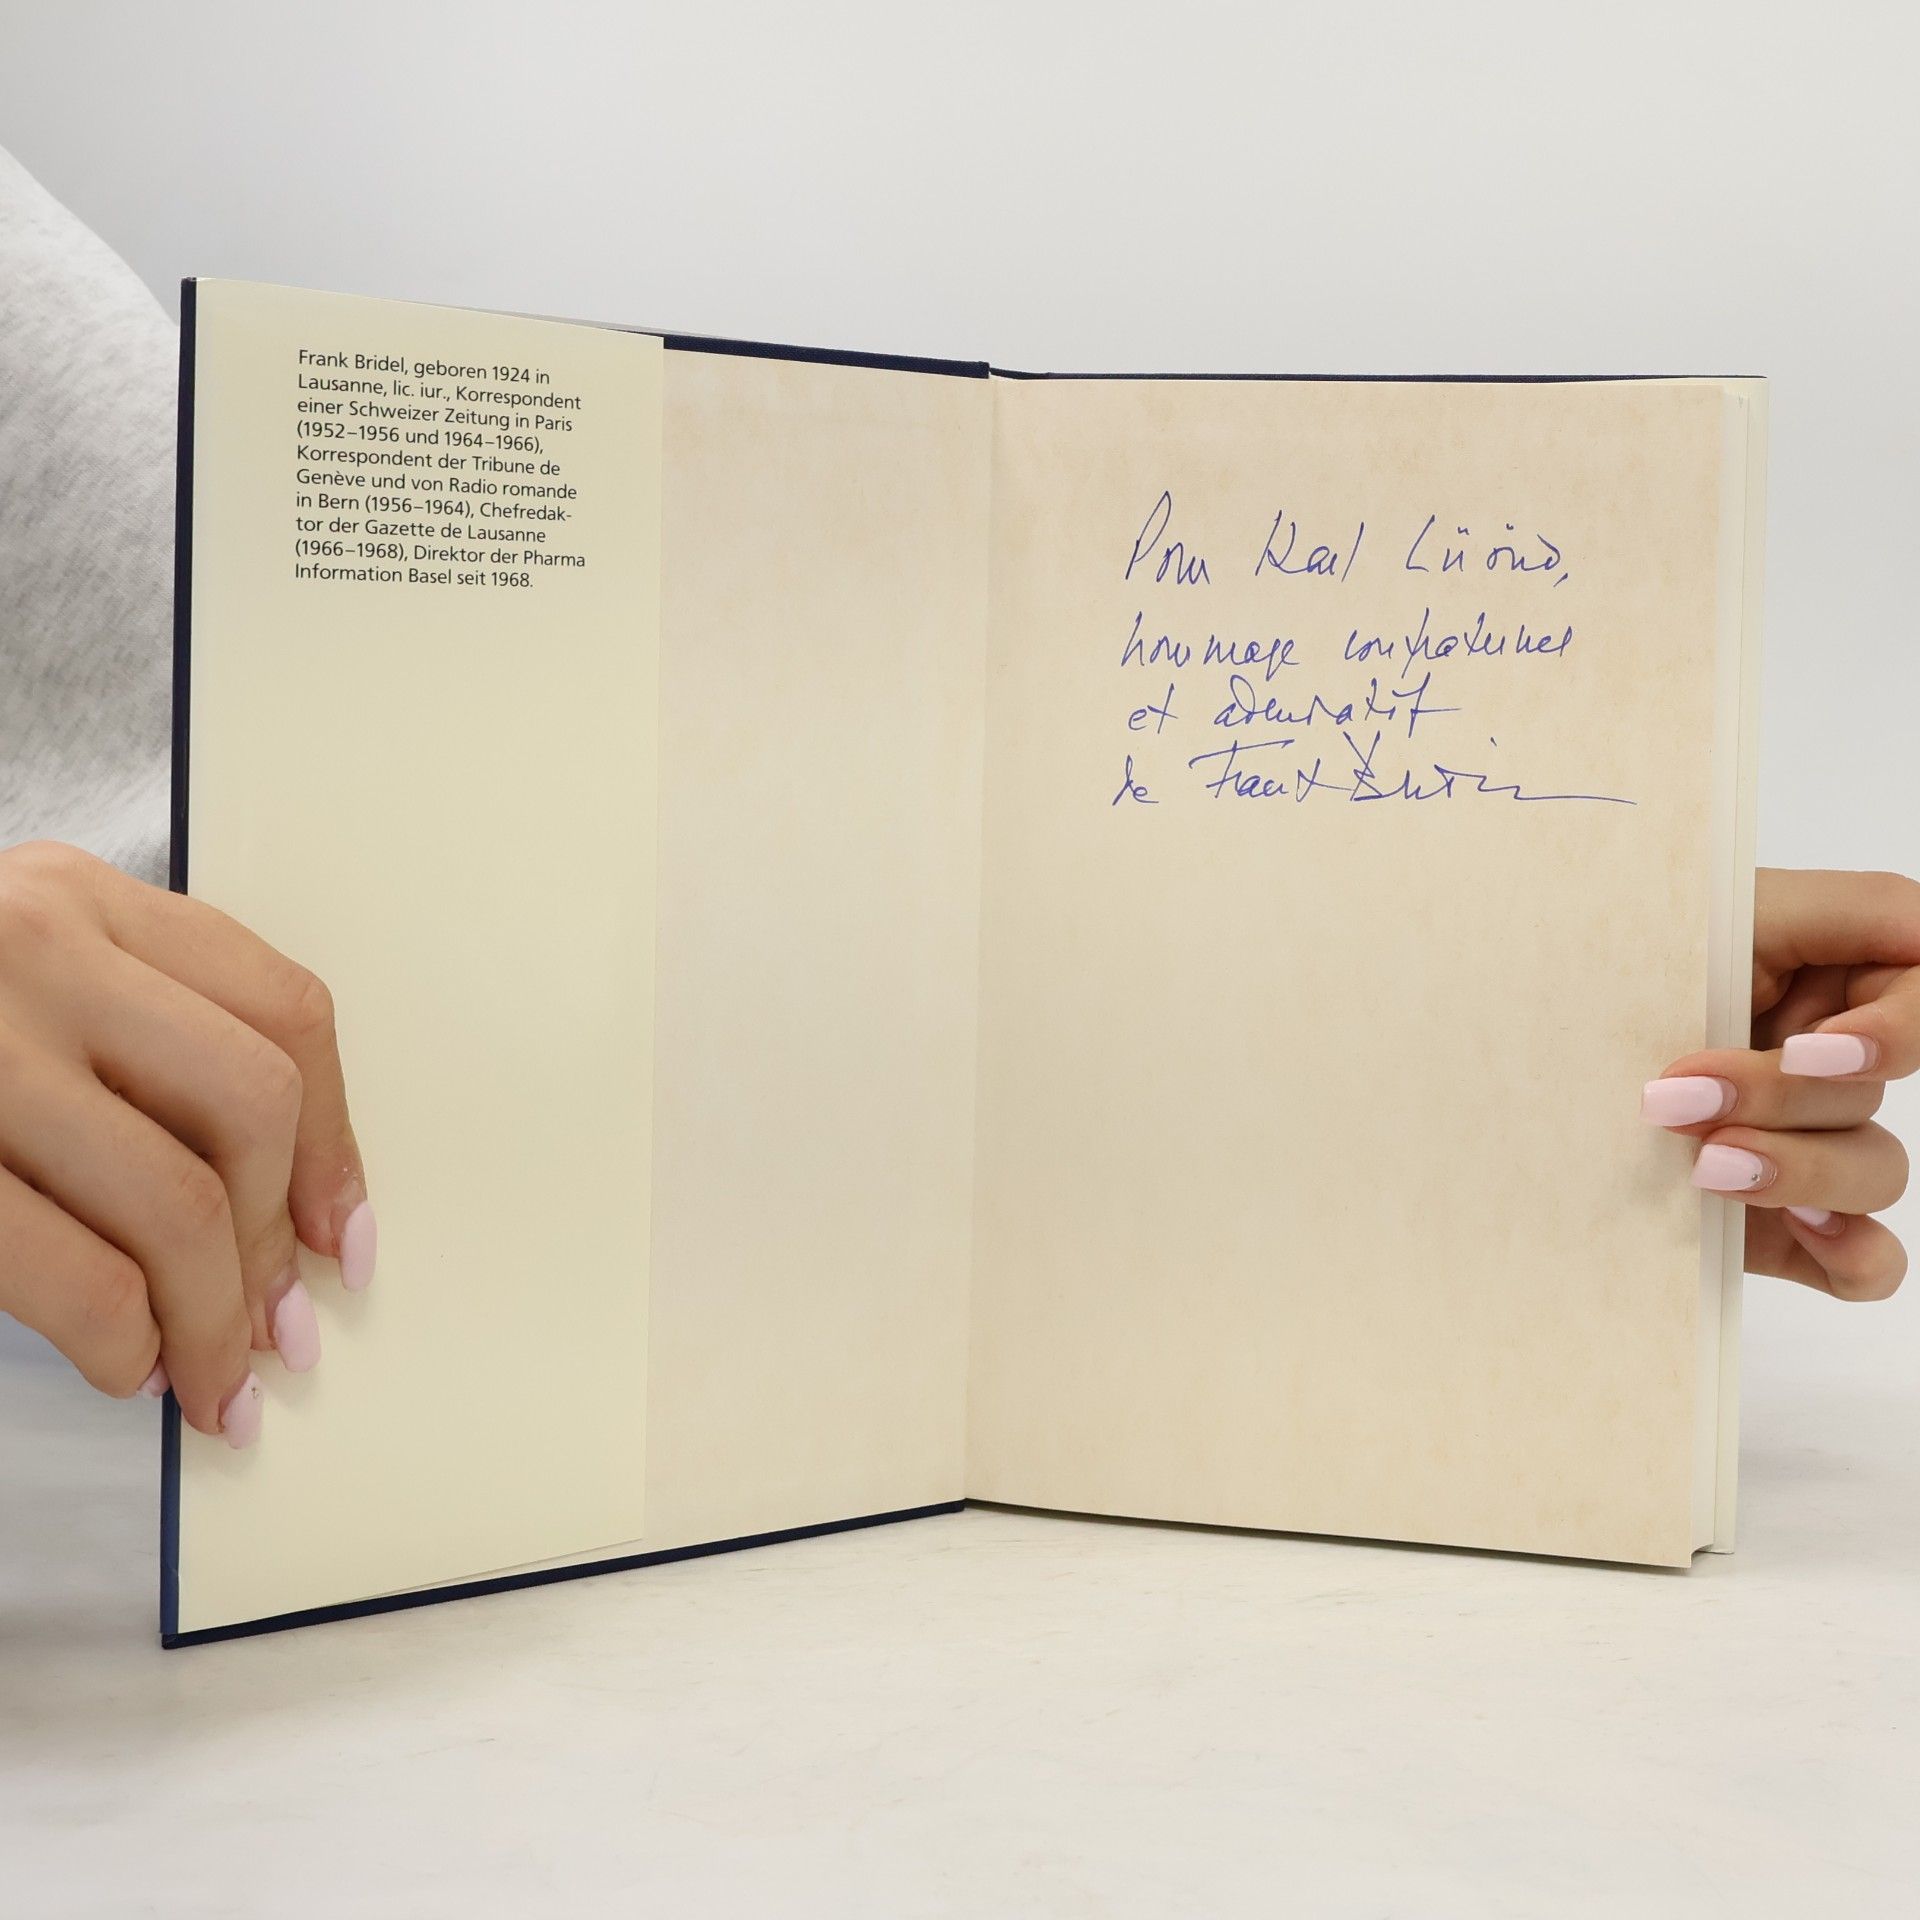 Frank Bridel, geboren 1924 in
Lausanne, lic. iur., Korrespondent
einer Schweizer Zeitung in Paris
(1952–1956 und 1964–1966),
Korrespondent der Tribune de
Genève und von Radio romande
in Bern (1956–1964), Chefredak-
tor der Gazette de Lausanne
(1966–1968), Direktor der Pharma
Information Basel seit 1968.
Pour Karl Lüönd,
hommage confraternel
et admiratif
de Frank Bridel